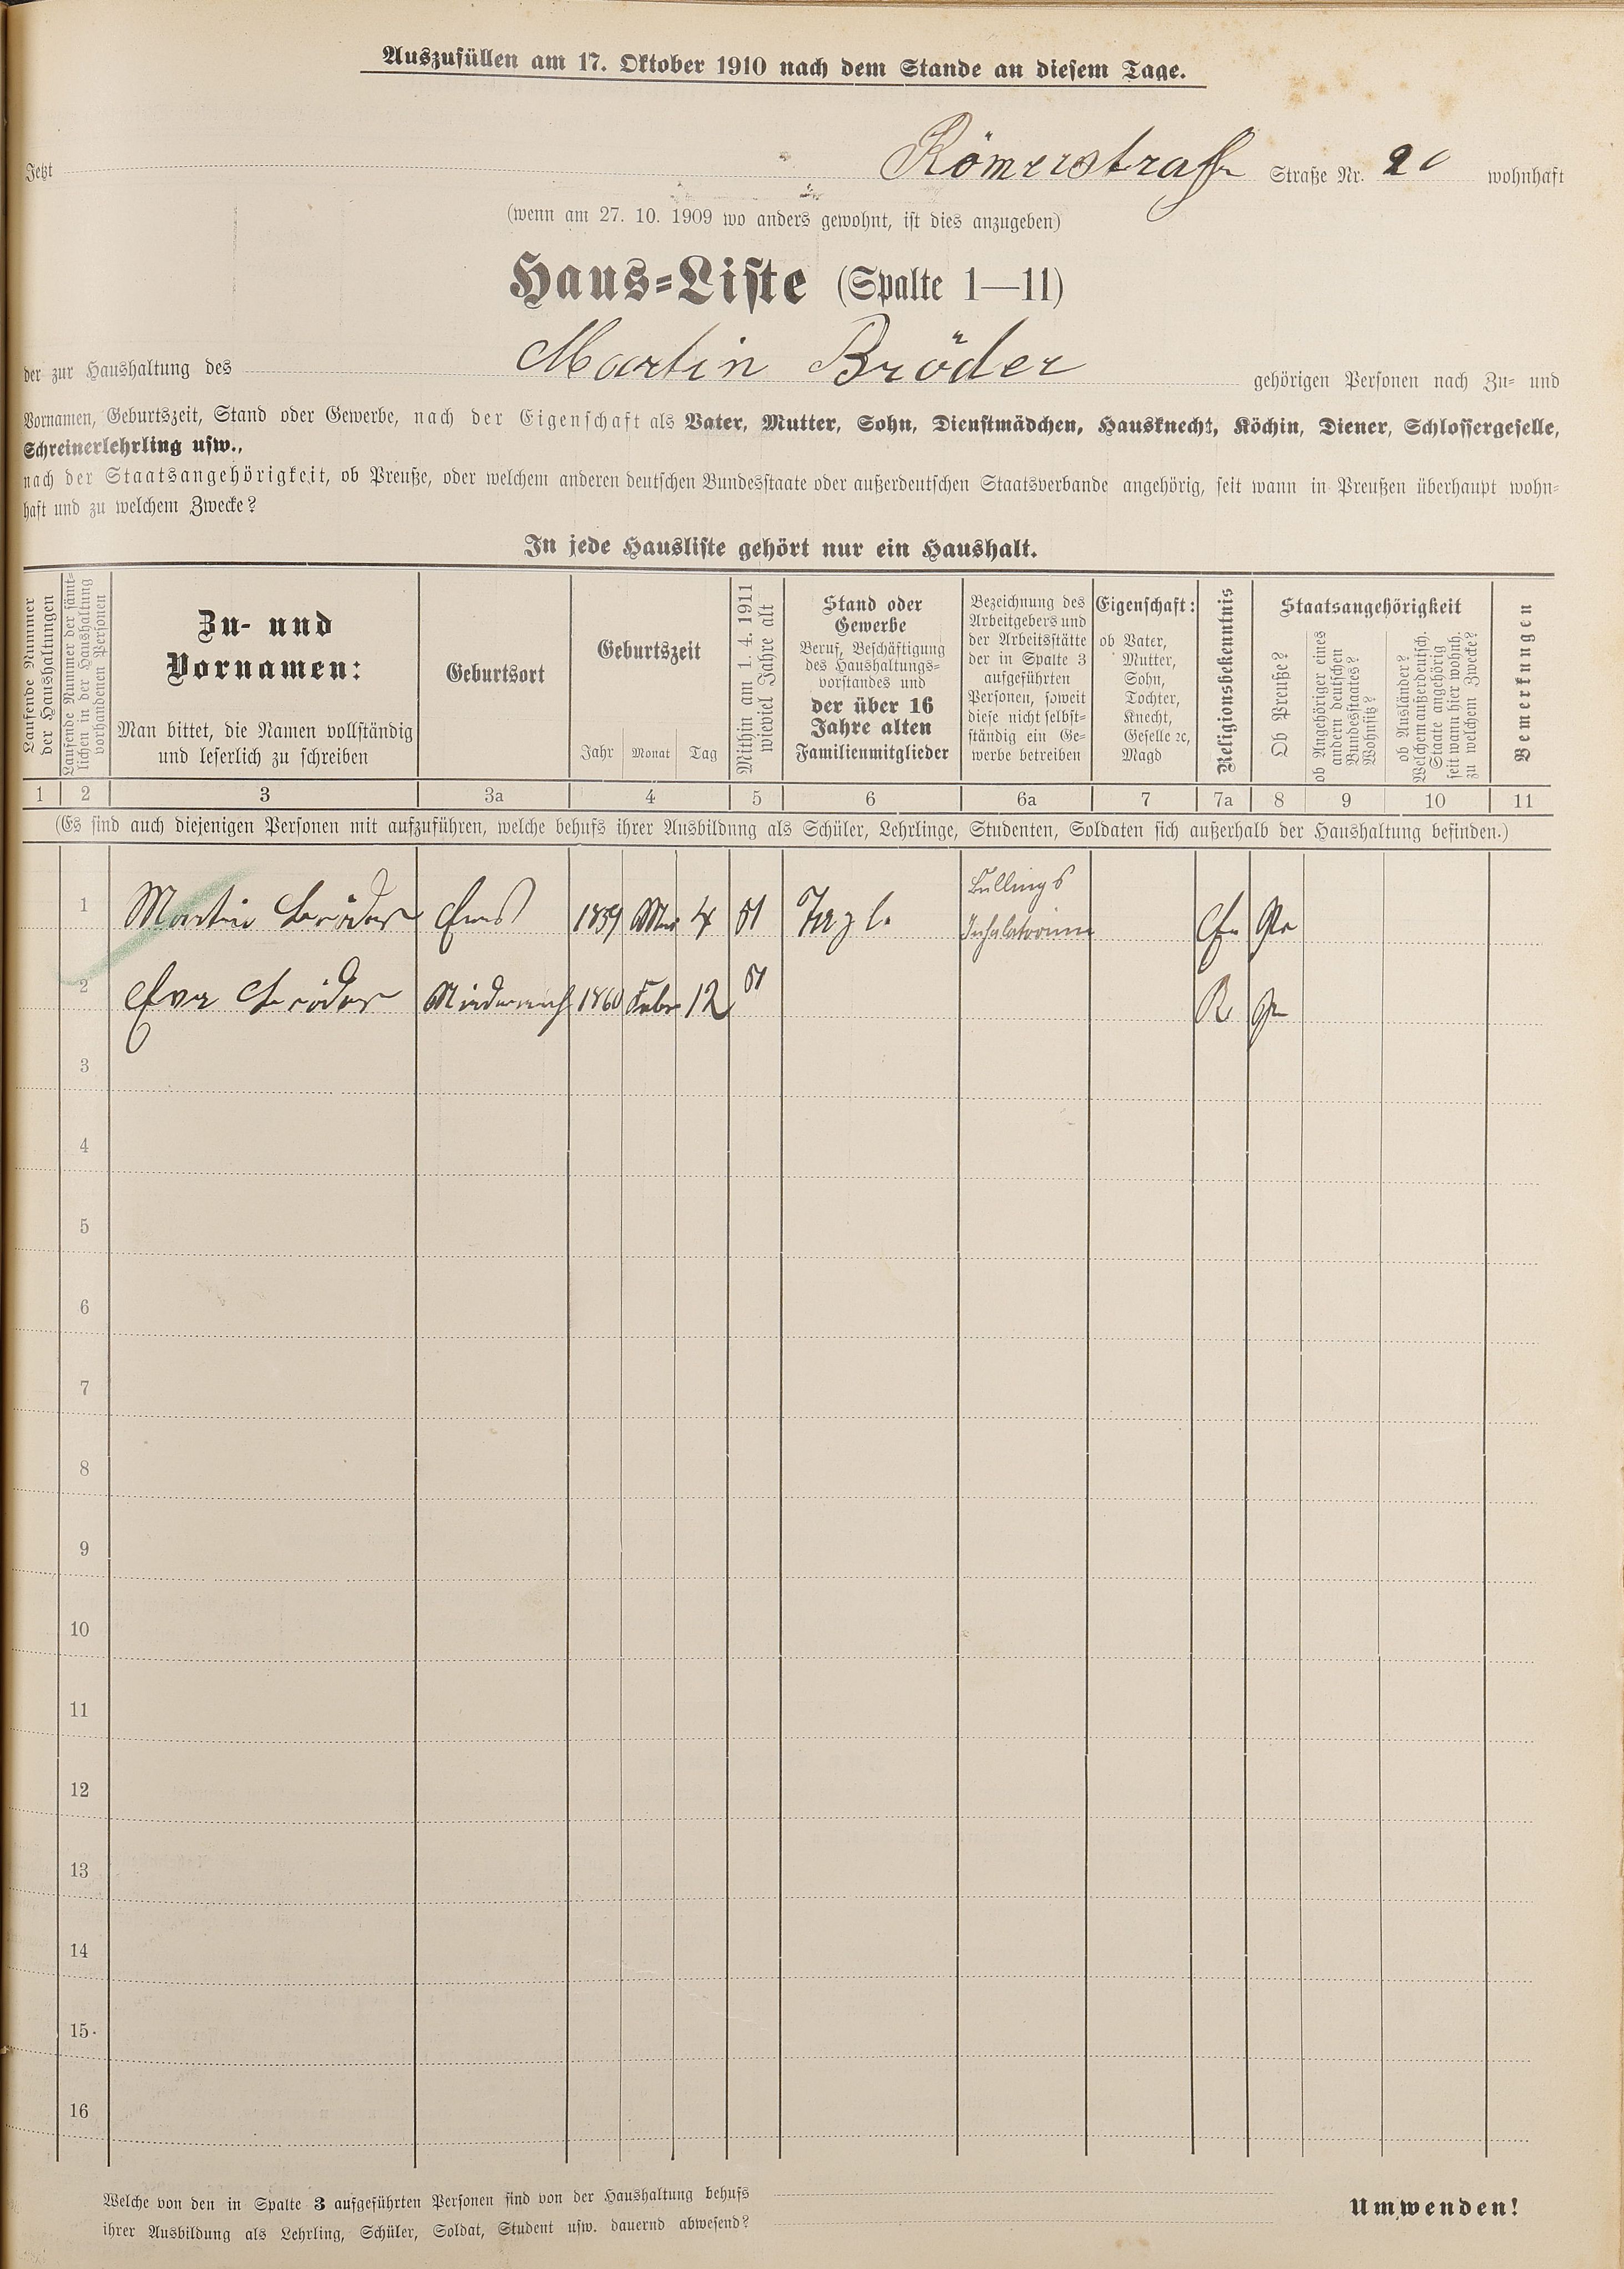 Auszufüllen am 17. Oktober 1910 nach dem Stande an diesem Tage.
Jetzt Römerstraße Straße Nr. wohnhaft
(wenn am 27. 10. 1909 wo anders gewohnt, ist dies anzugeben)
Haus-Liste (Spalte 1—11)
der zur Haushaltung des Martin Bröder gehörigen Personen nach Zu- und
Vornamen, Geburtszeit, Stand oder Gewerbe, nach der Eigenschaft als Vater, Mutter, Sohn, Dienstmädchen, Hausknecht, Köchin, Diener, Schlossergeselle,
Schreinerlehrling usw.,
nach der Staatsangehörigkeit, ob Preuße, oder welchem anderen deutschen Bundesstaate oder außerdeutschen Staatsverbande angehörig, seit wann in Preußen überhaupt wohn-
haft und zu welchem Zwecke?
In jede Hausliste gehört nur ein Haushalt.
Laufende Nummer
der Haushaltungen
Laufende Nummer der sämt-
lichen in der Haushaltung
vorhandenen Personen
Zu- und
Vornamen:
Man bittet, die Namen vollständig
und leserlich zu schreiben
Geburtsort
Geburtszeit
Jahr Monat Tag
Mithin am 1. 4. 1911
wieviel Jahre alt
Stand oder
Gewerbe
Beruf, Beschäftigung
des Haushaltungs-
vorstandes und
der über 16
Jahre alten
Familienmitglieder
Bezeichnung des
Arbeitgebers und
der Arbeitsstätte
der in Spalte 3
aufgeführten
Personen, soweit
diese nicht selbst-
ständig ein Ge-
werbe betreiben
Eigenschaft:
ob Vater,
Mutter,
Sohn,
Tochter,
Knecht,
Geselle ꝛc,
Magd
Religionsbekenntnis
Staatsangehörigkeit
Ob Preuße?
ob Angehöriger eines
andern deutschen
Bundesstaates?
Wohnsitz?
ob Ausländer?
Welchem außerdeutsch.
Staate angehörig
seit wann hier wohnh.
zu welchem Zwecke?
Bemerkungen
1 2 3 3a 4 5 6 6a 7 7a 8 9 10 11
(Es sind auch diejenigen Personen mit aufzuführen, welche behufs ihrer Ausbildung als Schüler, Lehrlinge, Studenten, Soldaten sich außerhalb der Haushaltung befinden.)
1 Martin Bröder Ems 1859 4 51 Inhalatorium
2 Eva Bröder 1860 Febr 12 51
3
4
5
6
7
8
9
10
11
12
13
14
15
16
Welche von den in Spalte 3 aufgeführten Personen sind von der Haushaltung behufs
ihrer Ausbildung als Lehrling, Schüler, Soldat, Student usw. dauernd abwesend?
Umwenden!